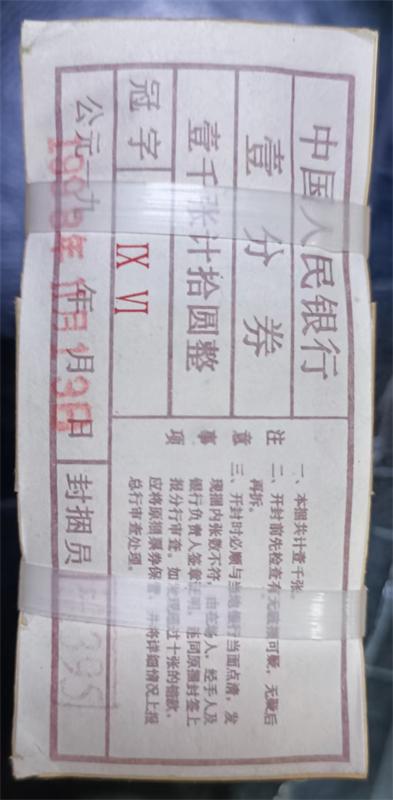 中国人民银行
壹分券
壹千张计拾圆整
冠字
IX VI
公元一九 年 月 日
封捆员
注意事项
一、本捆共计壹千张。
二、开封前先检查有无破漏可疑，无疑后
再拆。
三、开封时必顺与当地银行当面点清，发
现捆内张数不符，由在场人、经手人及
银行负责人签章证明，连同原捆封签上
报分行审查。如发现超过十张的错款，
应将原捆票券保管，并将详细情况上报
总行审查处理。